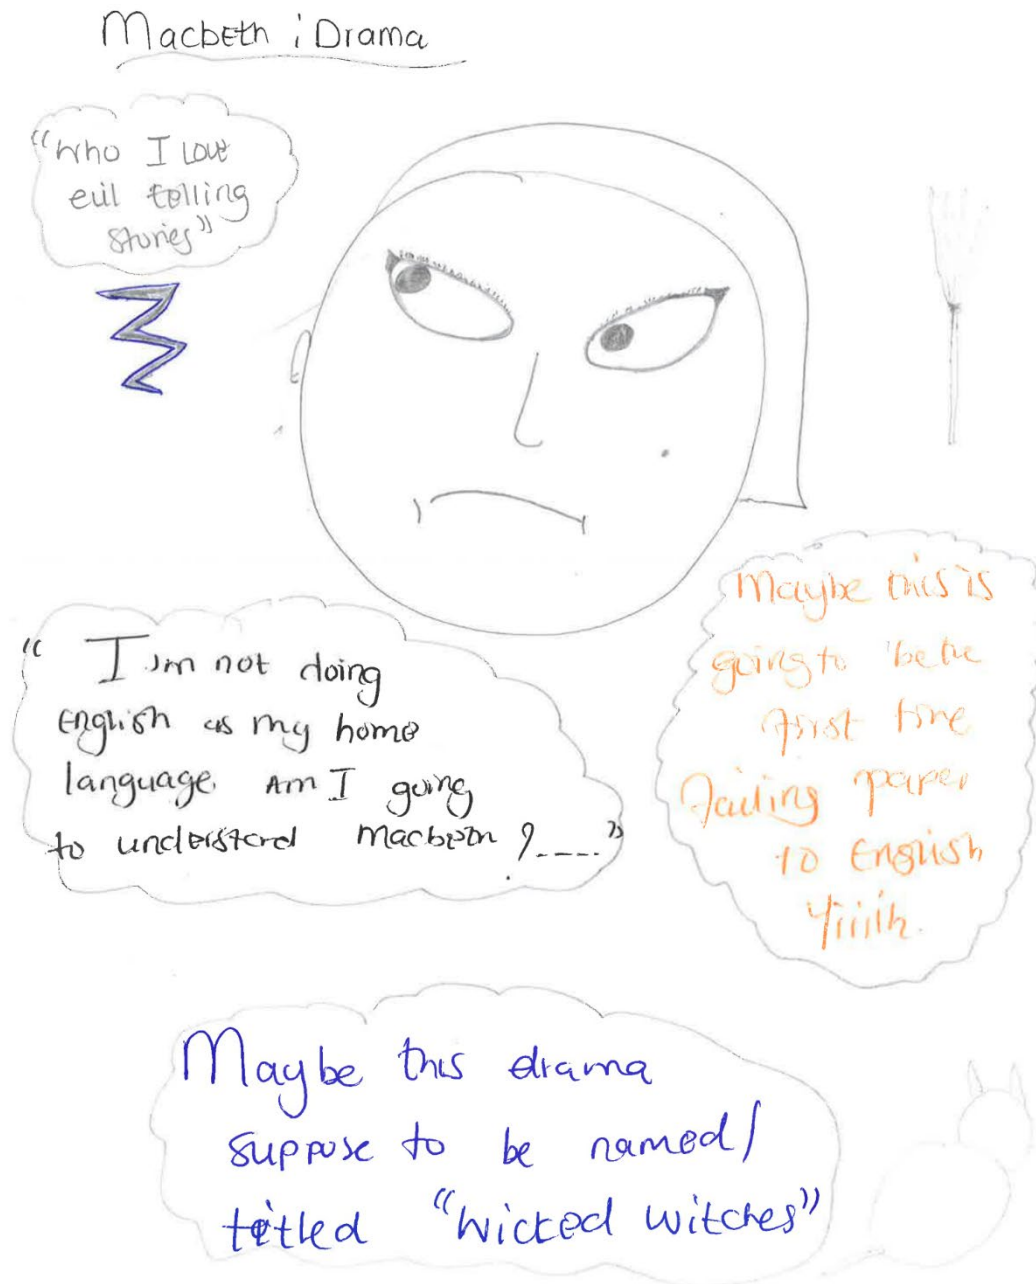 Macbeth : Drama
"Who I love
evil telling
stories"
" I am not doing
English as my home
language. Am I going
to understand Macbeth ?----"
Maybe this is
going to be the
first time
failing paper
to English
Yiiih.
Maybe this drama
suppose to be named/
titled "Wicked witches"